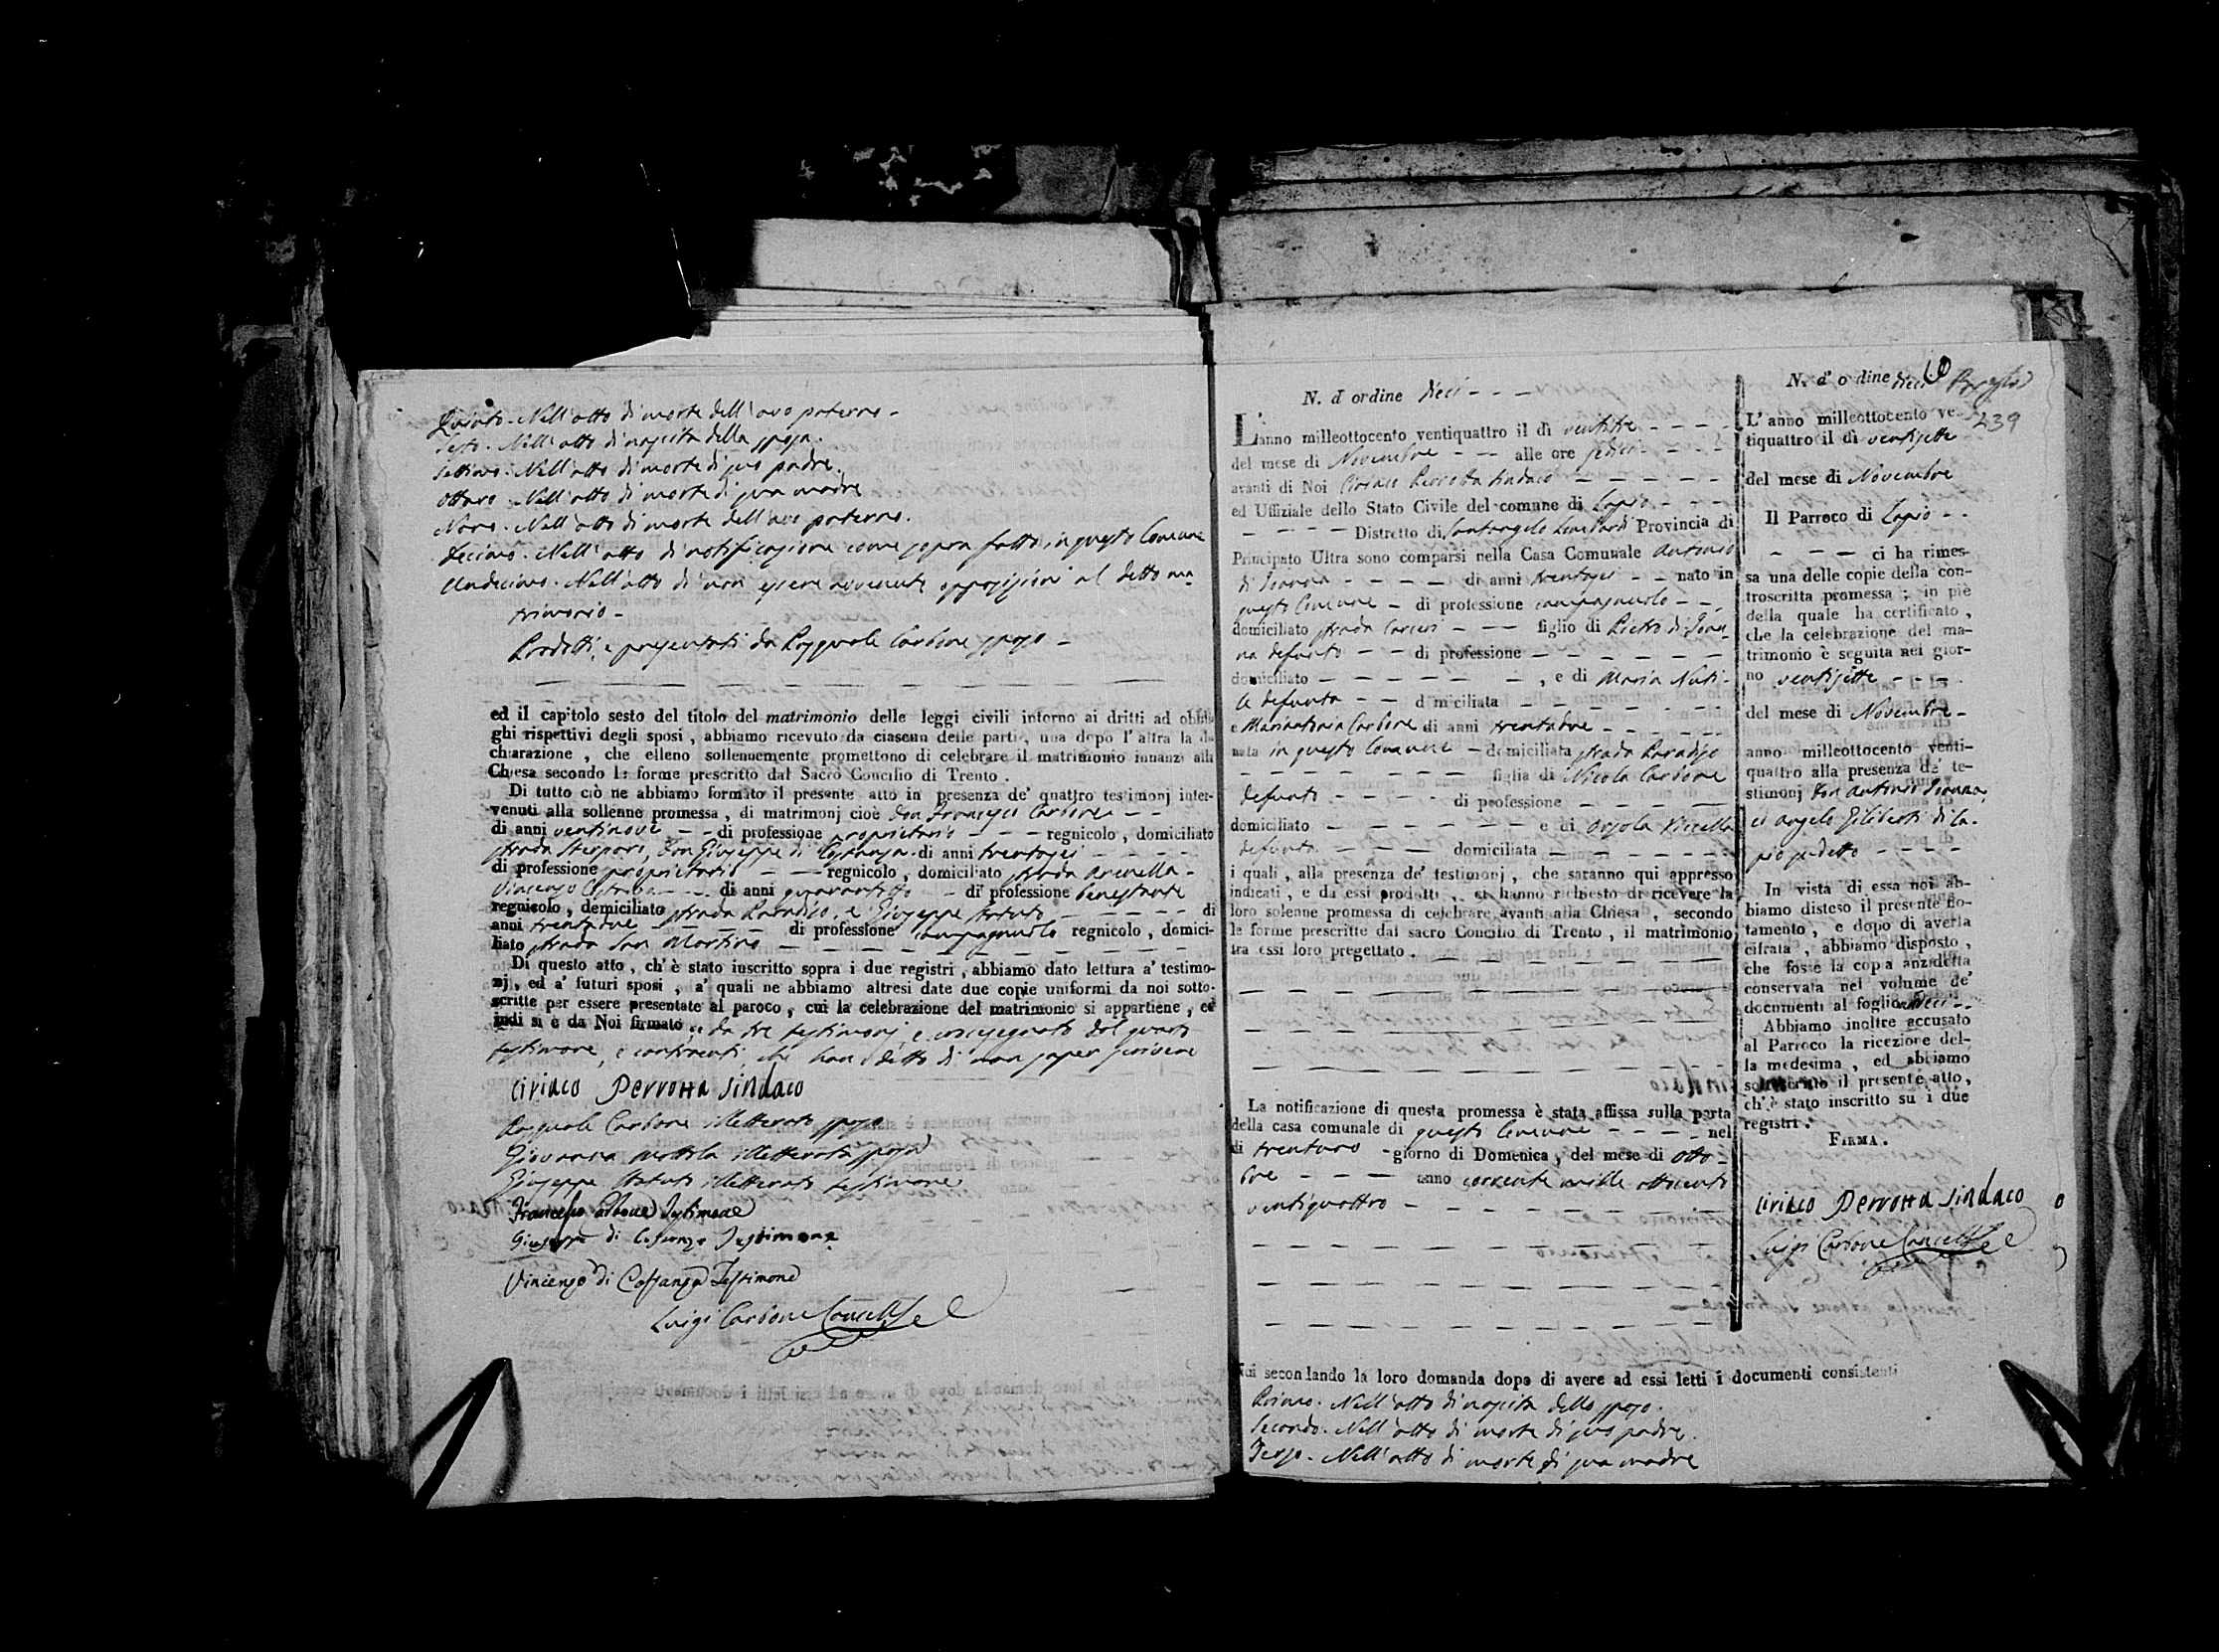 Quinto. Nell'atto di morte dell'avo paterno -
Sesto. Nell'atto di nascita della sposa.
Settimo. Nell'atto di morte di suo padre.
Ottavo. Nell'atto di morte di sua madre
Nono. Nell'atto di morte dell'avo paterno.
Decimo. Nell'atto di notificazione come sopra fatto in questo Comune
Undecimo. Nell'atto di non essere avvenute opposizioni al detto ma
trimonio -
Prodotti, e presentati da Pasquale Carbone sposo -
ed il capitolo sesto del titolo del matrimonio delle leggi civili intorno ai dritti ad obbli
ghi rispettivi degli sposi, abbiamo ricevuto da ciascun delle parti, una dopo l'altra la di
chiarazione, che elleno sollennemente promettono di celebrare il matrimonio innanzi alla
Chiesa secondo le forme prescritto dal Sacro Concilio di Trento.
Di tutto ciò ne abbiamo formato il presente atto in presenza de' quattro testimonj inter-
venuti alla sollenne promessa, di matrimonj cioè Don Francesco Carbone - -
di anni ventinove - - di professione proprietario - - - regnicolo, domiciliato
strada, Don Giuseppe di Costanza di anni trentasei - - - -
di professione proprietario - - regnicolo, domiciliato strada -
Vincenzo - - - di anni quarantotto - di professione benestante
regnicolo, domiciliato strada Paradiso, e Giuseppe - - - - - di
anni trentadue - - - - di professione campagnuolo regnicolo, domici-
liato strada San Martino - - - - - - - -
Di questo atto, ch'è stato inscritto sopra i due registri, abbiamo dato lettura a' testimo-
nj, ed a' futuri sposi, a' quali ne abbiamo altresi date due copie uniformi da noi sotto-
scritte per essere presentate al paroco, cui la celebrazione del matrimonio si appartiene, ed
indi si è da Noi firmato, da tre testimonj, e dal quarto
testimone, e contraenti, che han detto di non saper scrivere
Ciriaco Perrotta Sindaco
Pasquale Carbone illetterato sposo
Giovanna illetterata sposa
Giuseppe illetterato testimone
Francesco Carbone Testimone
Giuseppe di Costanza Testimone
Vincenzo di Costanza Testimone
Luigi Carbone Cancelle
N. d'ordine dieci - - -
L'anno milleottocento ventiquattro il dì ventitre - - - -
del mese di Novembre - - alle ore sedici - - - -
avanti di Noi Ciriaco Perrotta Sindaco - - - - -
ed Uffiziale dello Stato Civile del comune di Lapio - - -
- - - Distretto di Santangelo Lombardi Provincia di
Principato Ultra sono comparsi nella Casa Comunale Antonio
di Ioanna - - - - di anni trentasei - - nato in
questo Comune - di professione campagnuolo - -,
domiciliato strada Carceri - - figlio di Pietro di Ioan-
na defunto - - di professione - - - - - -
domiciliato - - - - - -, e di Maria
le defunta - - domiciliata - - - - - -
e Mariantonia Carbone di anni trentadue - - - - -
nata in questo Comune - domiciliata strada Paradiso
- - - - - - - figlia di Nicola Carbone
defunto - - - - di professione - - - -
domiciliato - - - - - - e di Orsola
defunta - - - - domiciliata - - - - - -
i quali, alla presenza de' testimonj, che saranno qui appresso
indicati, e da essi prodotti, ci hanno richiesto di ricevere la
loro solenne promessa di celebrare avanti alla Chiesa, secondo
le forme prescritte dal sacro Concilio di Trento, il matrimonio
tra essi loro progettato. - - - - - -
La notificazione di questa promessa è stata affissa sulla porta
della casa comunale di questo Comune - - - - nel
di trentuno - giorno di Domenica, del mese di otto-
bre - - - anno corrente mille ottocento
ventiquattro - - - - - - - -
Noi secondando la loro domanda dopo di avere ad essi letti i documenti consistenti
Primo. Nell'atto di nascita dello sposo.
Secondo. Nell'atto di morte di suo padre.
Terzo. Nell'atto di morte di sua madre
N. d'ordine dieci
10
239
L'anno milleottocento ven-
tiquattro il di ventisette
del mese di Novembre
Il Parroco di Lapio - -
- - - ci ha rimes-
sa una delle copie della con-
troscritta promessa; in piè
della quale ha certificato,
che la celebrazione del ma-
trimonio è seguita nei gior-
no ventisette - - -
del mese di Novembre -
anno milleottocento venti-
quattro alla presenza de' te-
stimonj Don Antonio
ed Angelo Giliberti di La-
pio sudetto - - - -
In vista di essa noi ab-
biamo disteso il presente no-
tamento, e dopo di averla
cifrata, abbiamo disposto,
che fosse la copia anzidetta
conservata nel volume de'
documenti al foglio
Abbiamo inoltre accusato
al Parroco la ricezione del-
la medesima, ed abbiamo
sottoscritto il presente atto,
ch'è stato inscritto su i due
registri.
FIRMA.
Ciriaco Perrotta Sindaco
Luigi Carbone Cancelle